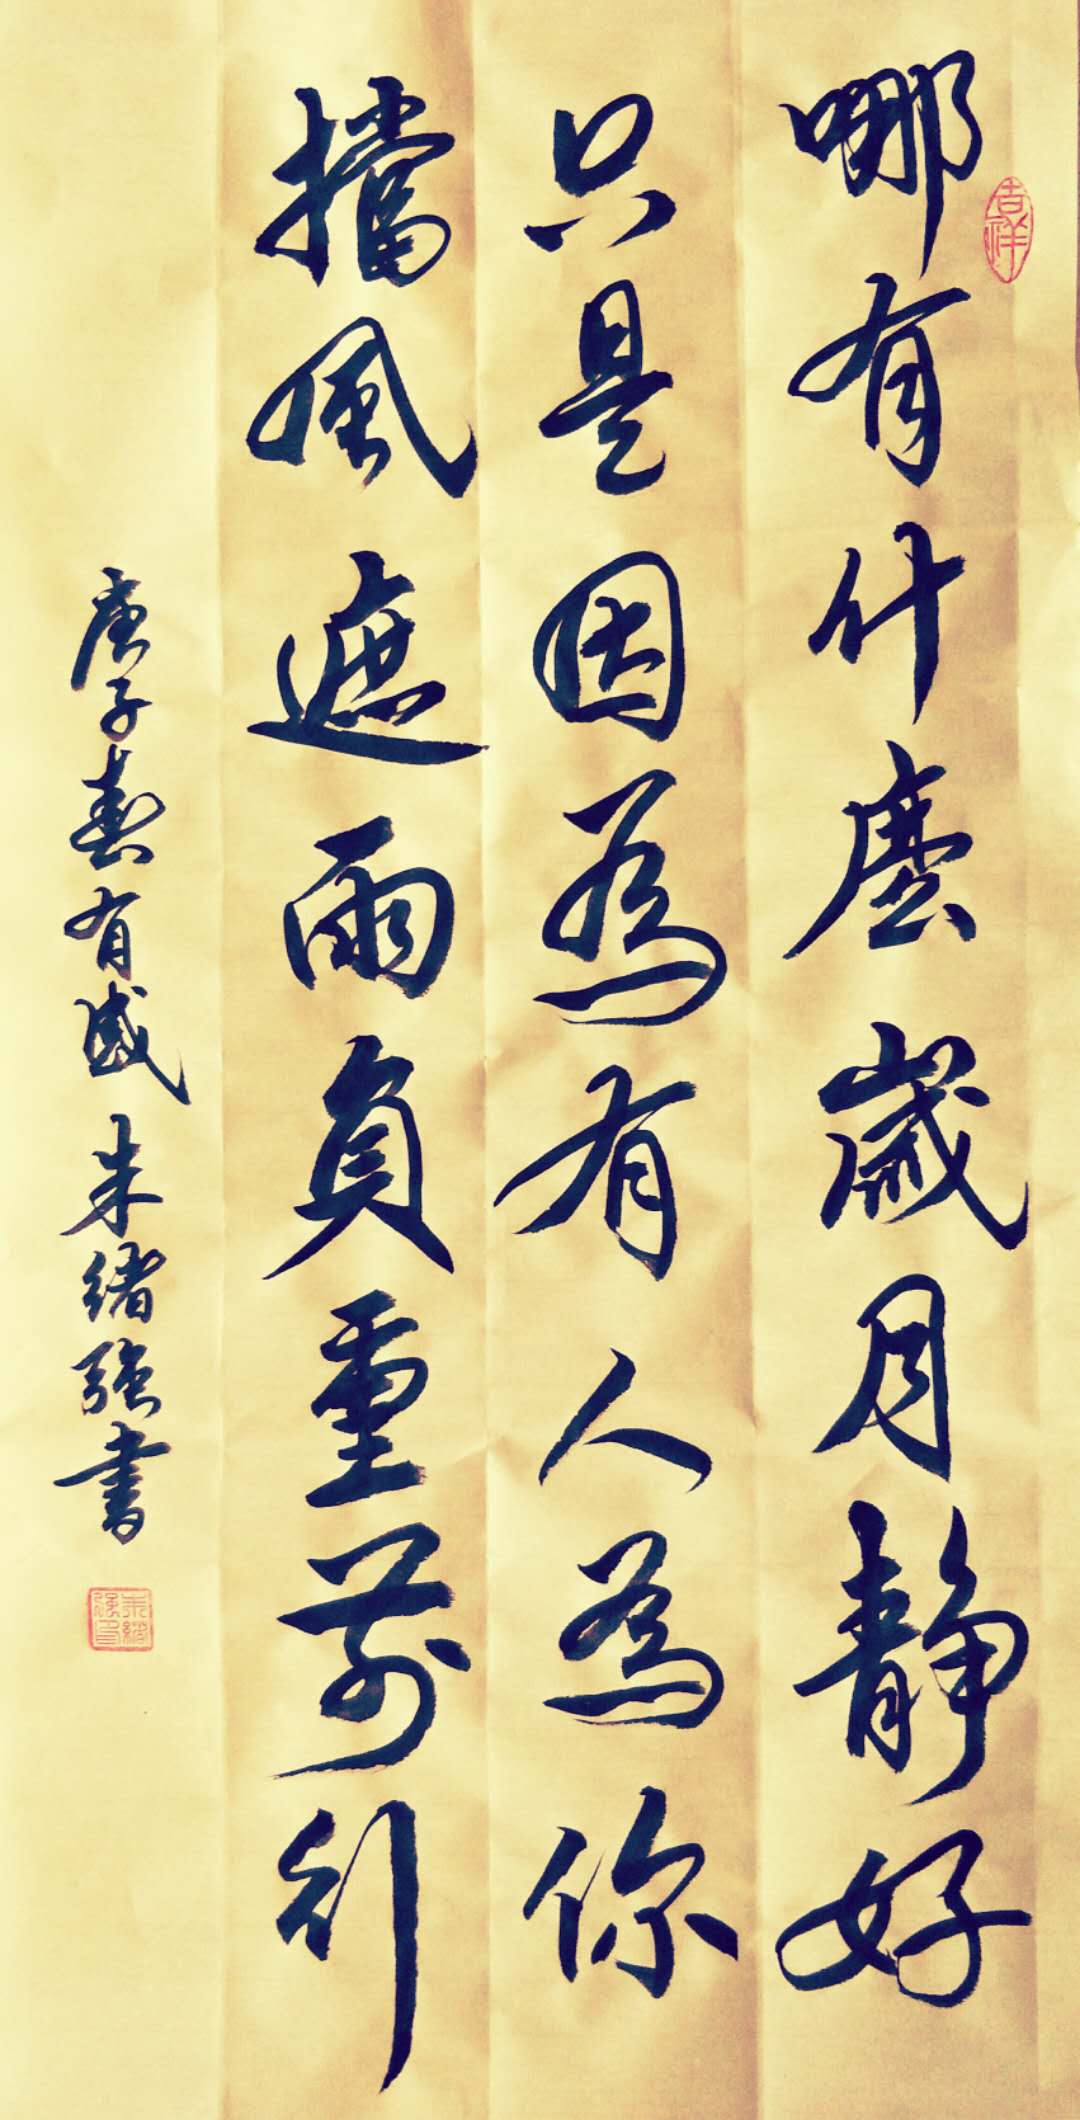 哪有什麼歲月静好
只是因為有人為你
擋風遮雨負重前行
庚子春有感朱緒強書
吉祥
朱緒強印